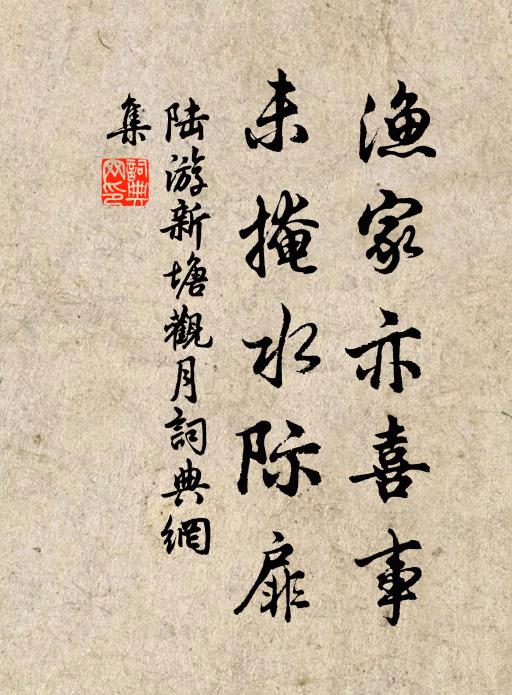 渔家亦喜事
未掩水际扉
陆游新塘觀月詞典網
集
詞典
网印